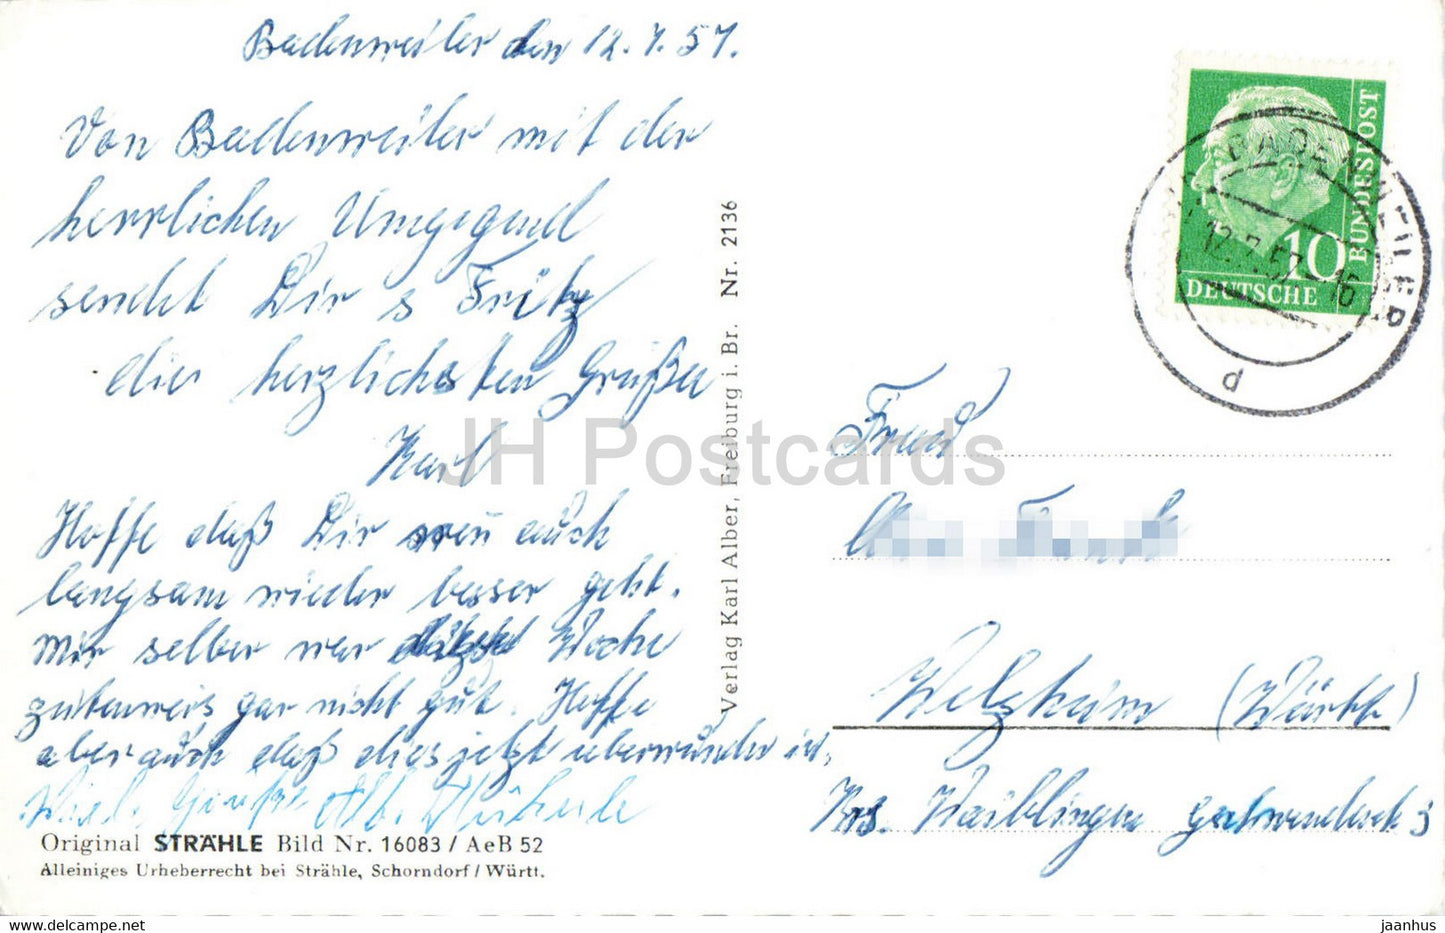 Badenweiler den 12.7.57.
Von Badenweiler mit der
herrlichen Umgegend
sendet Dir s Fritz
die herzlichsten Grüße
Karl
Hoffe daß Dir auch
langsam wieder besser geht.
Mir selber war Woche
zeitenweis gar nicht gut. Hoffe
aber auch daß dies jetzt überwunden ist.
Viele Grüße
Original STRÄHLE Bild Nr. 16083 / AeB 52
Alleiniges Urheberrecht bei Strähle, Schorndorf / Württ.
Verlag Karl Alber, Freiburg i. Br. Nr. 2136
JH Postcards
BUNDESPOST
10
DEUTSCHE
BADENWEILER
12.7.57-16
d
Frau
Welzheim (Württ)
Krs. Waiblingen
https://www.ebay.com/usr/jaanhus
jaanhus